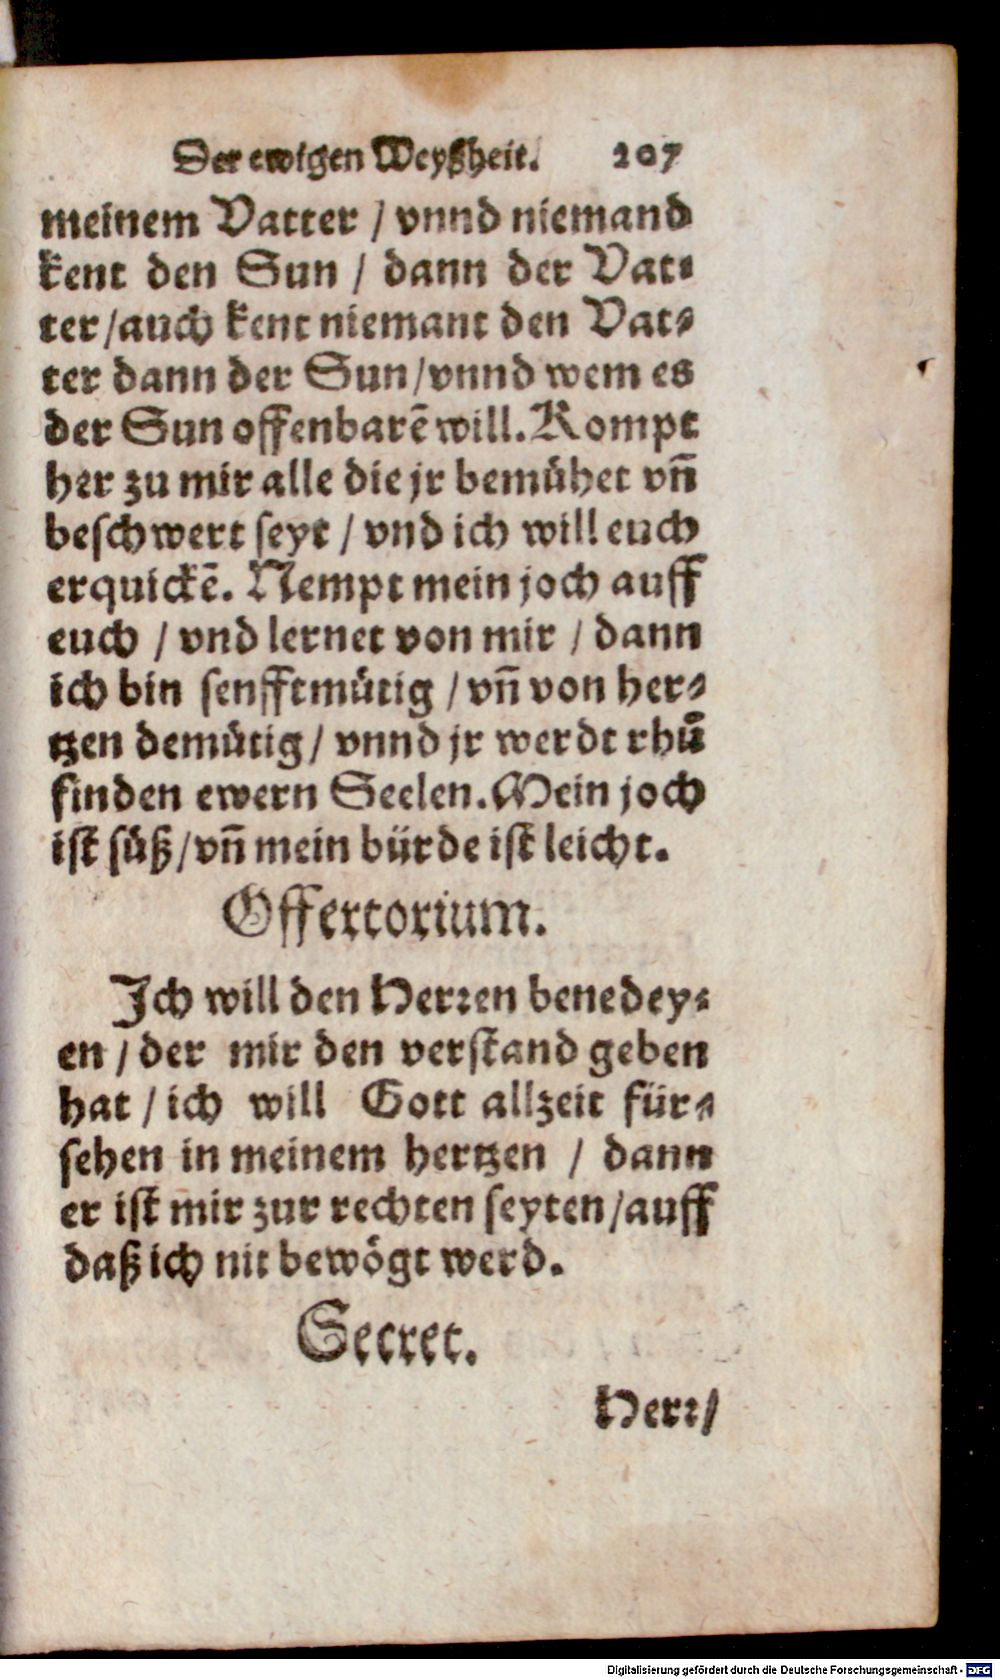 Der ewigen Weyßheit. 207
meinem Vatter / vnnd niemand
kent den Sun / dann der Vat-
ter / auch kent niemant den Vat-
ter dann der Sun / vnnd wem es
der Sun offenbarẽ will. Kompt
her zu mir alle die jr bemühet vñ
beschwert seyt / vnd ich will euch
erquickẽ. Nempt mein joch auff
euch / vnd lernet von mir / dann
ich bin senfftmütig / vñ von her-
tzen demütig / vnnd jr werdt rhů
finden ewern Seelen. Mein joch
ist süß / vñ mein bürde ist leicht.
Offertorium.
Ich will den Herren benedey-
en / der mir den verstand geben
hat / ich will Gott allzeit für-
sehen in meinem hertzen / dann
er ist mir zur rechten seyten / auff
daß ich nit bewögt werd.
Secret.
Herr /
Digitalisierung gefördert durch die Deutsche Forschungsgemeinschaft - DFG